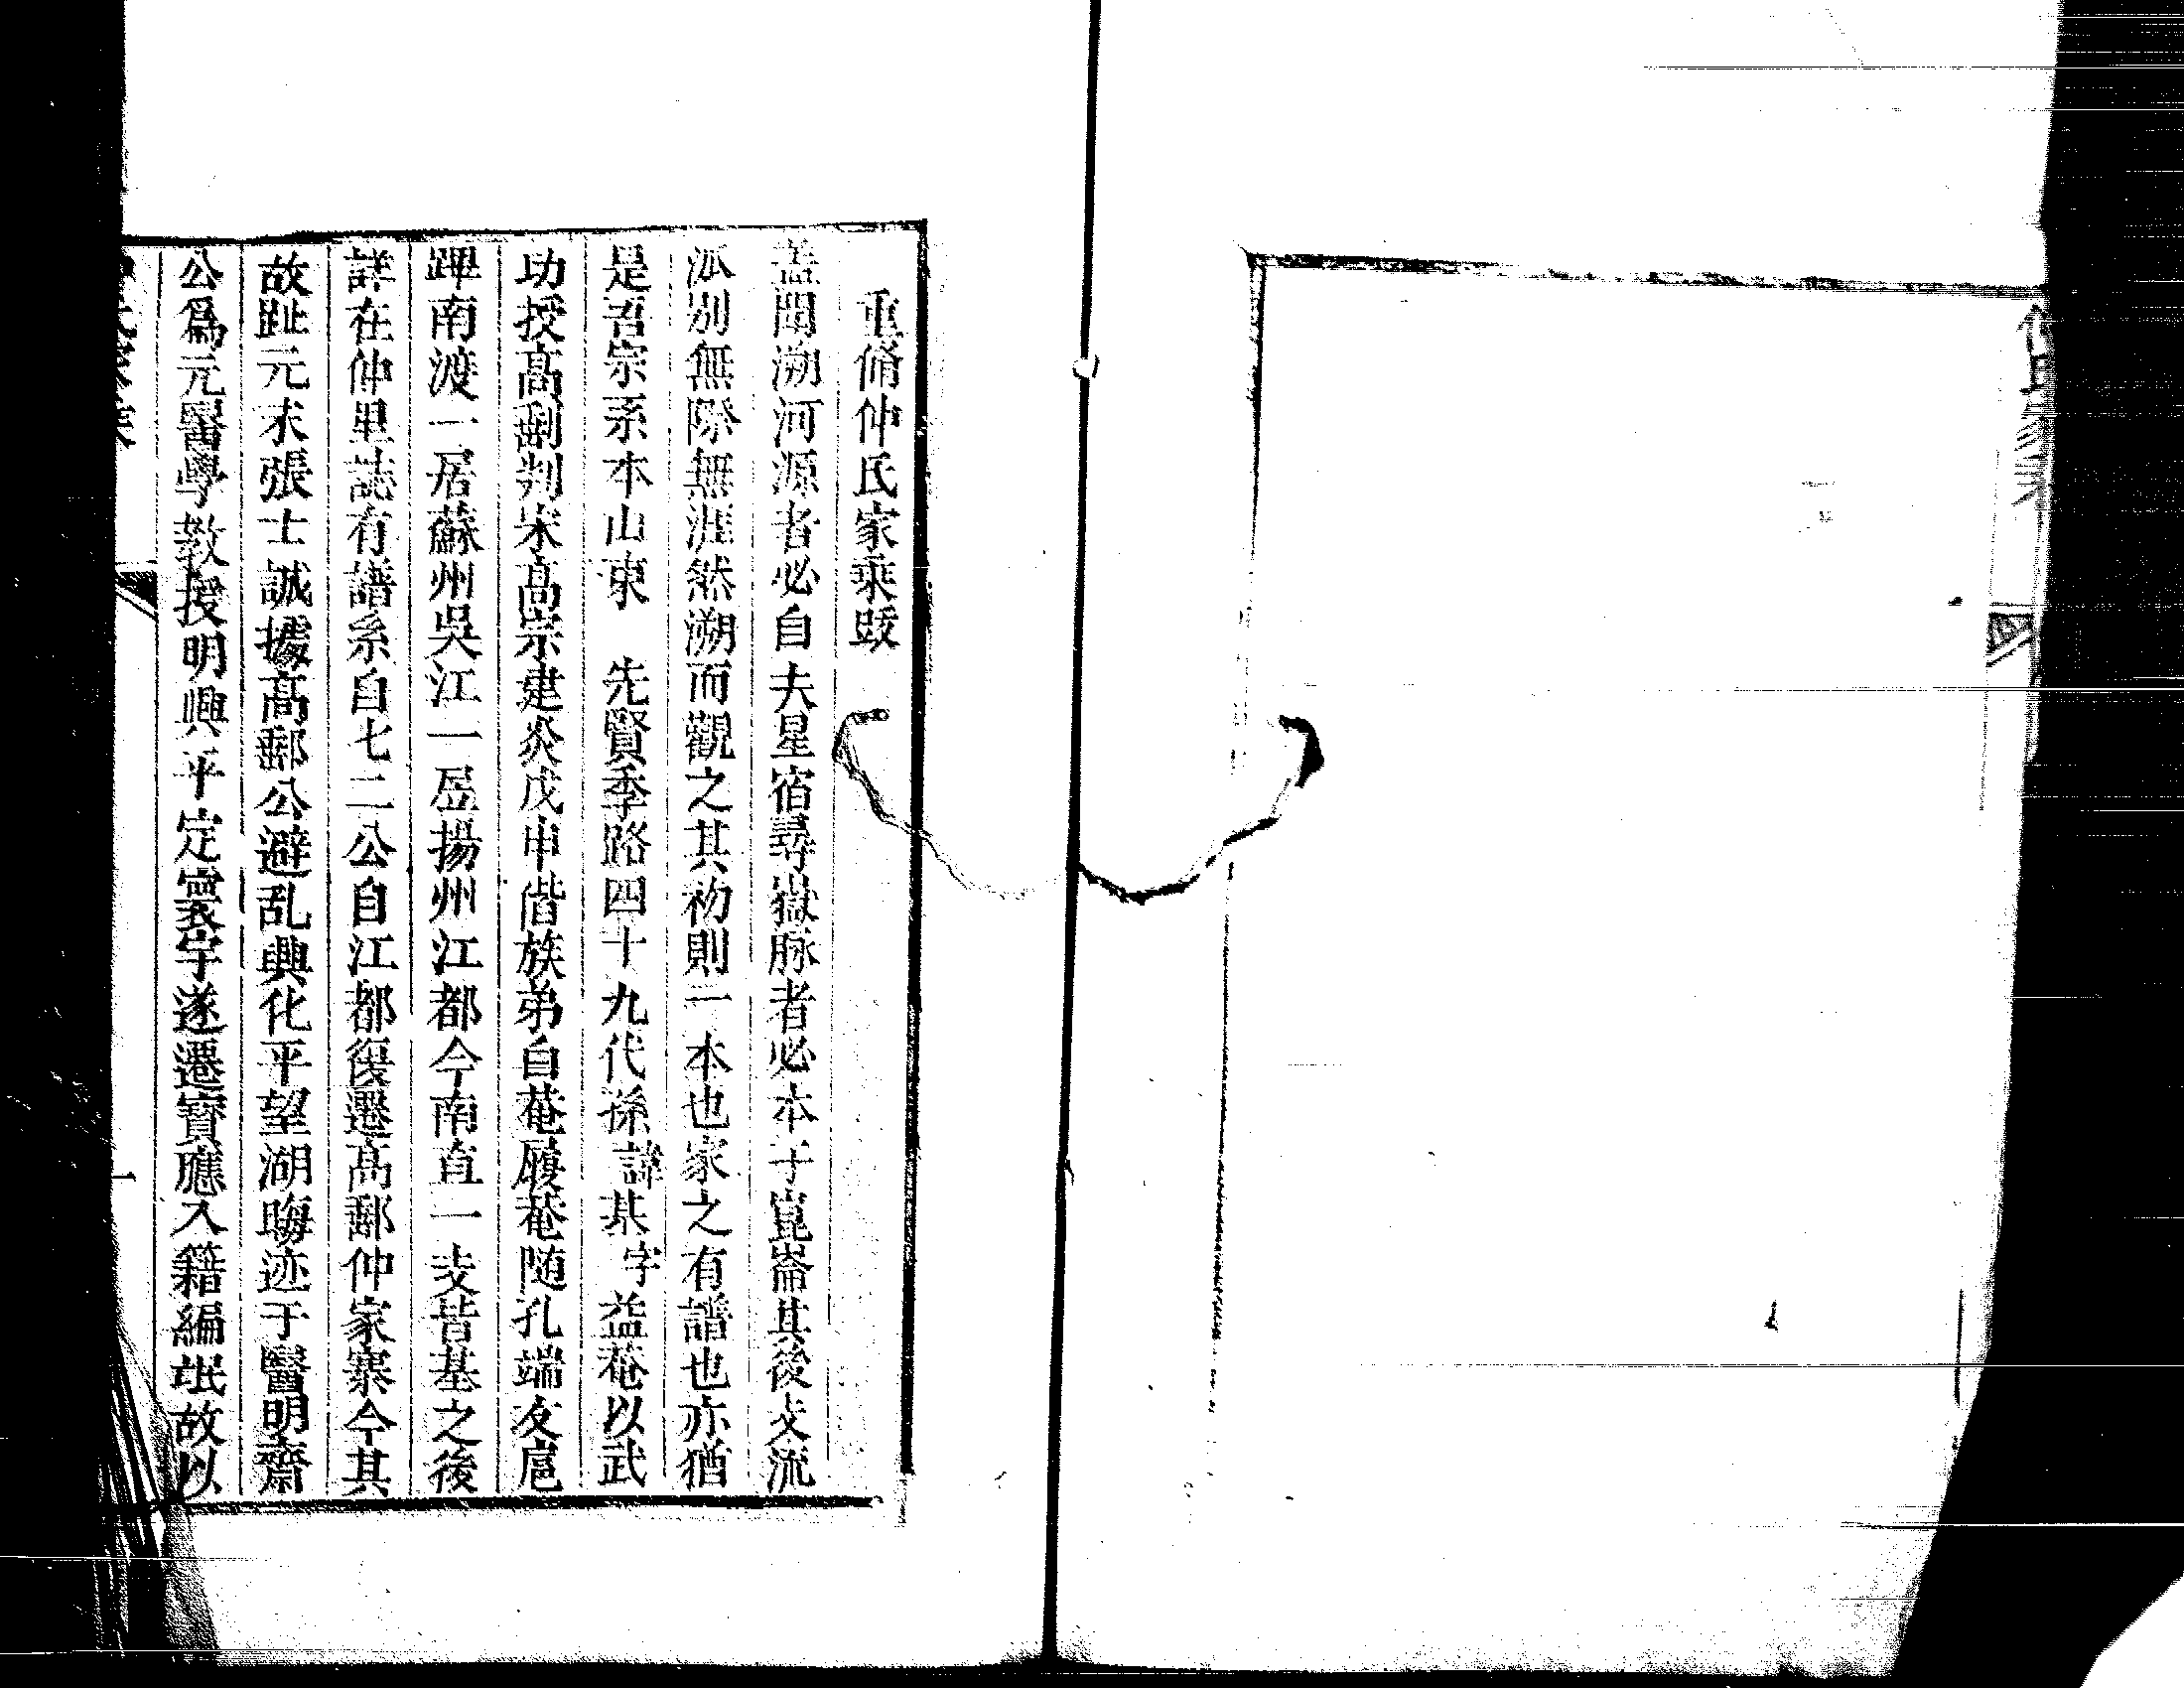 重脩仲氏家乘跋
盖聞溯河源者必自夫星宿尋嶽脉者必本于崑崙其後支流
派别無際無涯然溯而觀之其初則一本也家之有譜也亦猶
是吾宗系本山東　先賢季路四十九代孫諱某字益菴以武
功授高郵判宋高宗建炎戊申偕族弟自菴履菴随孔端友扈
蹕南渡一居蘇州吳江一居揚州江都今南直一支皆基之後
詳在仲里誌有譜系自七二公自江都復遷高郵仲家寨今其
故趾元末張士誠據高郵公避乱興化平望湖晦迹于醫明齋
公爲元醫學教授明興平定寰宇遂遷寶應入籍編氓故以